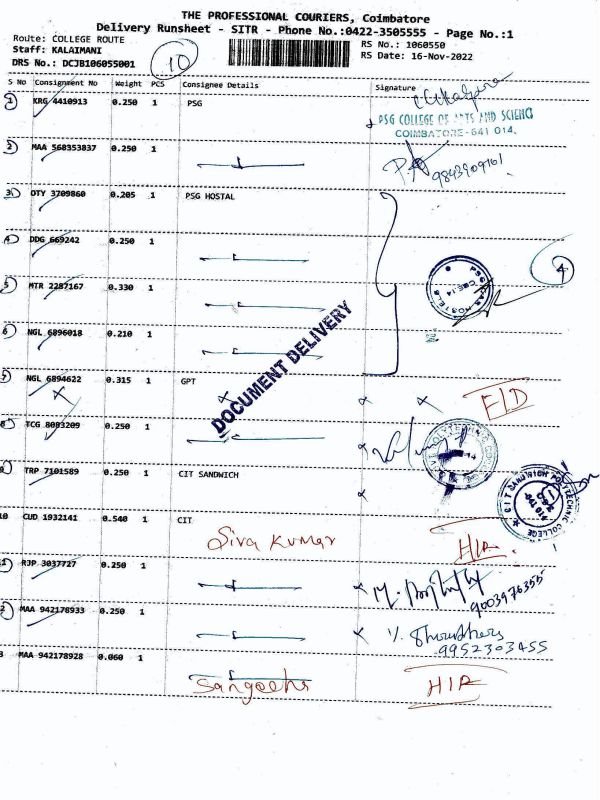 THE PROFESSIONAL COURIERS, Coimbatore
Delivery Runsheet - SITR - Phone No.:0422-3505555 - Page No.:1
Route: COLLEGE ROUTE
Staff: KALAIMANI
DRS No.: DCJB106055001
10
RS No.: 1060550
RS Date: 16-Nov-2022
S No Consignment No Weight PCS Consignee Details Signature
1 KRG 4410913 0.250 1 PSG
PSG COLLEGE OF ARTS AND SCIENC
COIMBATORE-641 014.
2 MAA 568353837 0.250 1
9843909761
3 DTY 3709860 0.205 1 PSG HOSTAL
4 DDG 669242 0.250 1
4
5 MTR 2287167 0.330 1
6 NGL 6896018 0.210 1
DOCUMENT DELIVERY
7 NGL 6894622 0.315 1 GPT
8 TCG 8083209 0.250 1
9 TRP 7101589 0.250 1 CIT SANDWICH
CIT SANDWICH POLYTECHNIC COLLEGE
10 CUD 1932141 0.540 1 CIT
Siva Kumar
1 RJP 3037727 0.250 1
9003976355
2 MAA 942178933 0.250 1
9952303455
3 MAA 942178928 0.060 1
Sangeetha